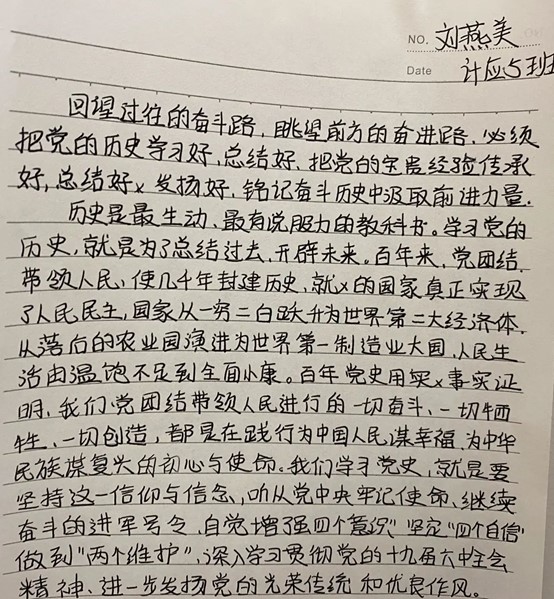 NO. 刘燕美
Date 计应5班
回望过往的奋斗路,眺望前方的奋进路,必须
把党的历史学习好,总结好、把党的宝贵经验传承
好,总结好x发扬好,铭记奋斗历史中汲取前进力量.
历史是最生动、最有说服力的教科书。学习党的
历史,就是为了总结过去、开辟未来。百年来,党团结
带领人民,使几千年封建历史,就x的国家真正实现
了人民民主,国家从一穷二白跃升为世界第二大经济体,
从落后的农业园演进为世界第一制造业大国,人民生
活由温饱不足到全面小康。百年党史用实x事实证
明,我们党团结带领人民进行的一切奋斗、一切牺
牲、一切创造,都是在践行为中国人民谋幸福,为中华
民族谋复兴的初心与使命。我们学习党史,就是要
坚持这一信仰与信念,听从党中央牢记使命、继续
奋斗的进军号令,自觉增强四个意识”坚定“四个自信”
做到“两个维护”,深入学习贯彻党的十九届六中全会
精神、进一步发扬党的光荣传统和优良作风。